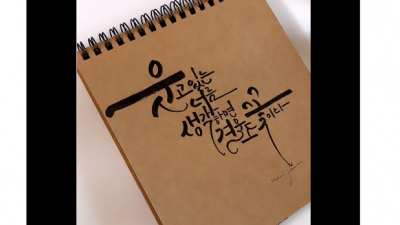 웃고 있는
너를
생각하면
겨울도 꽃이다